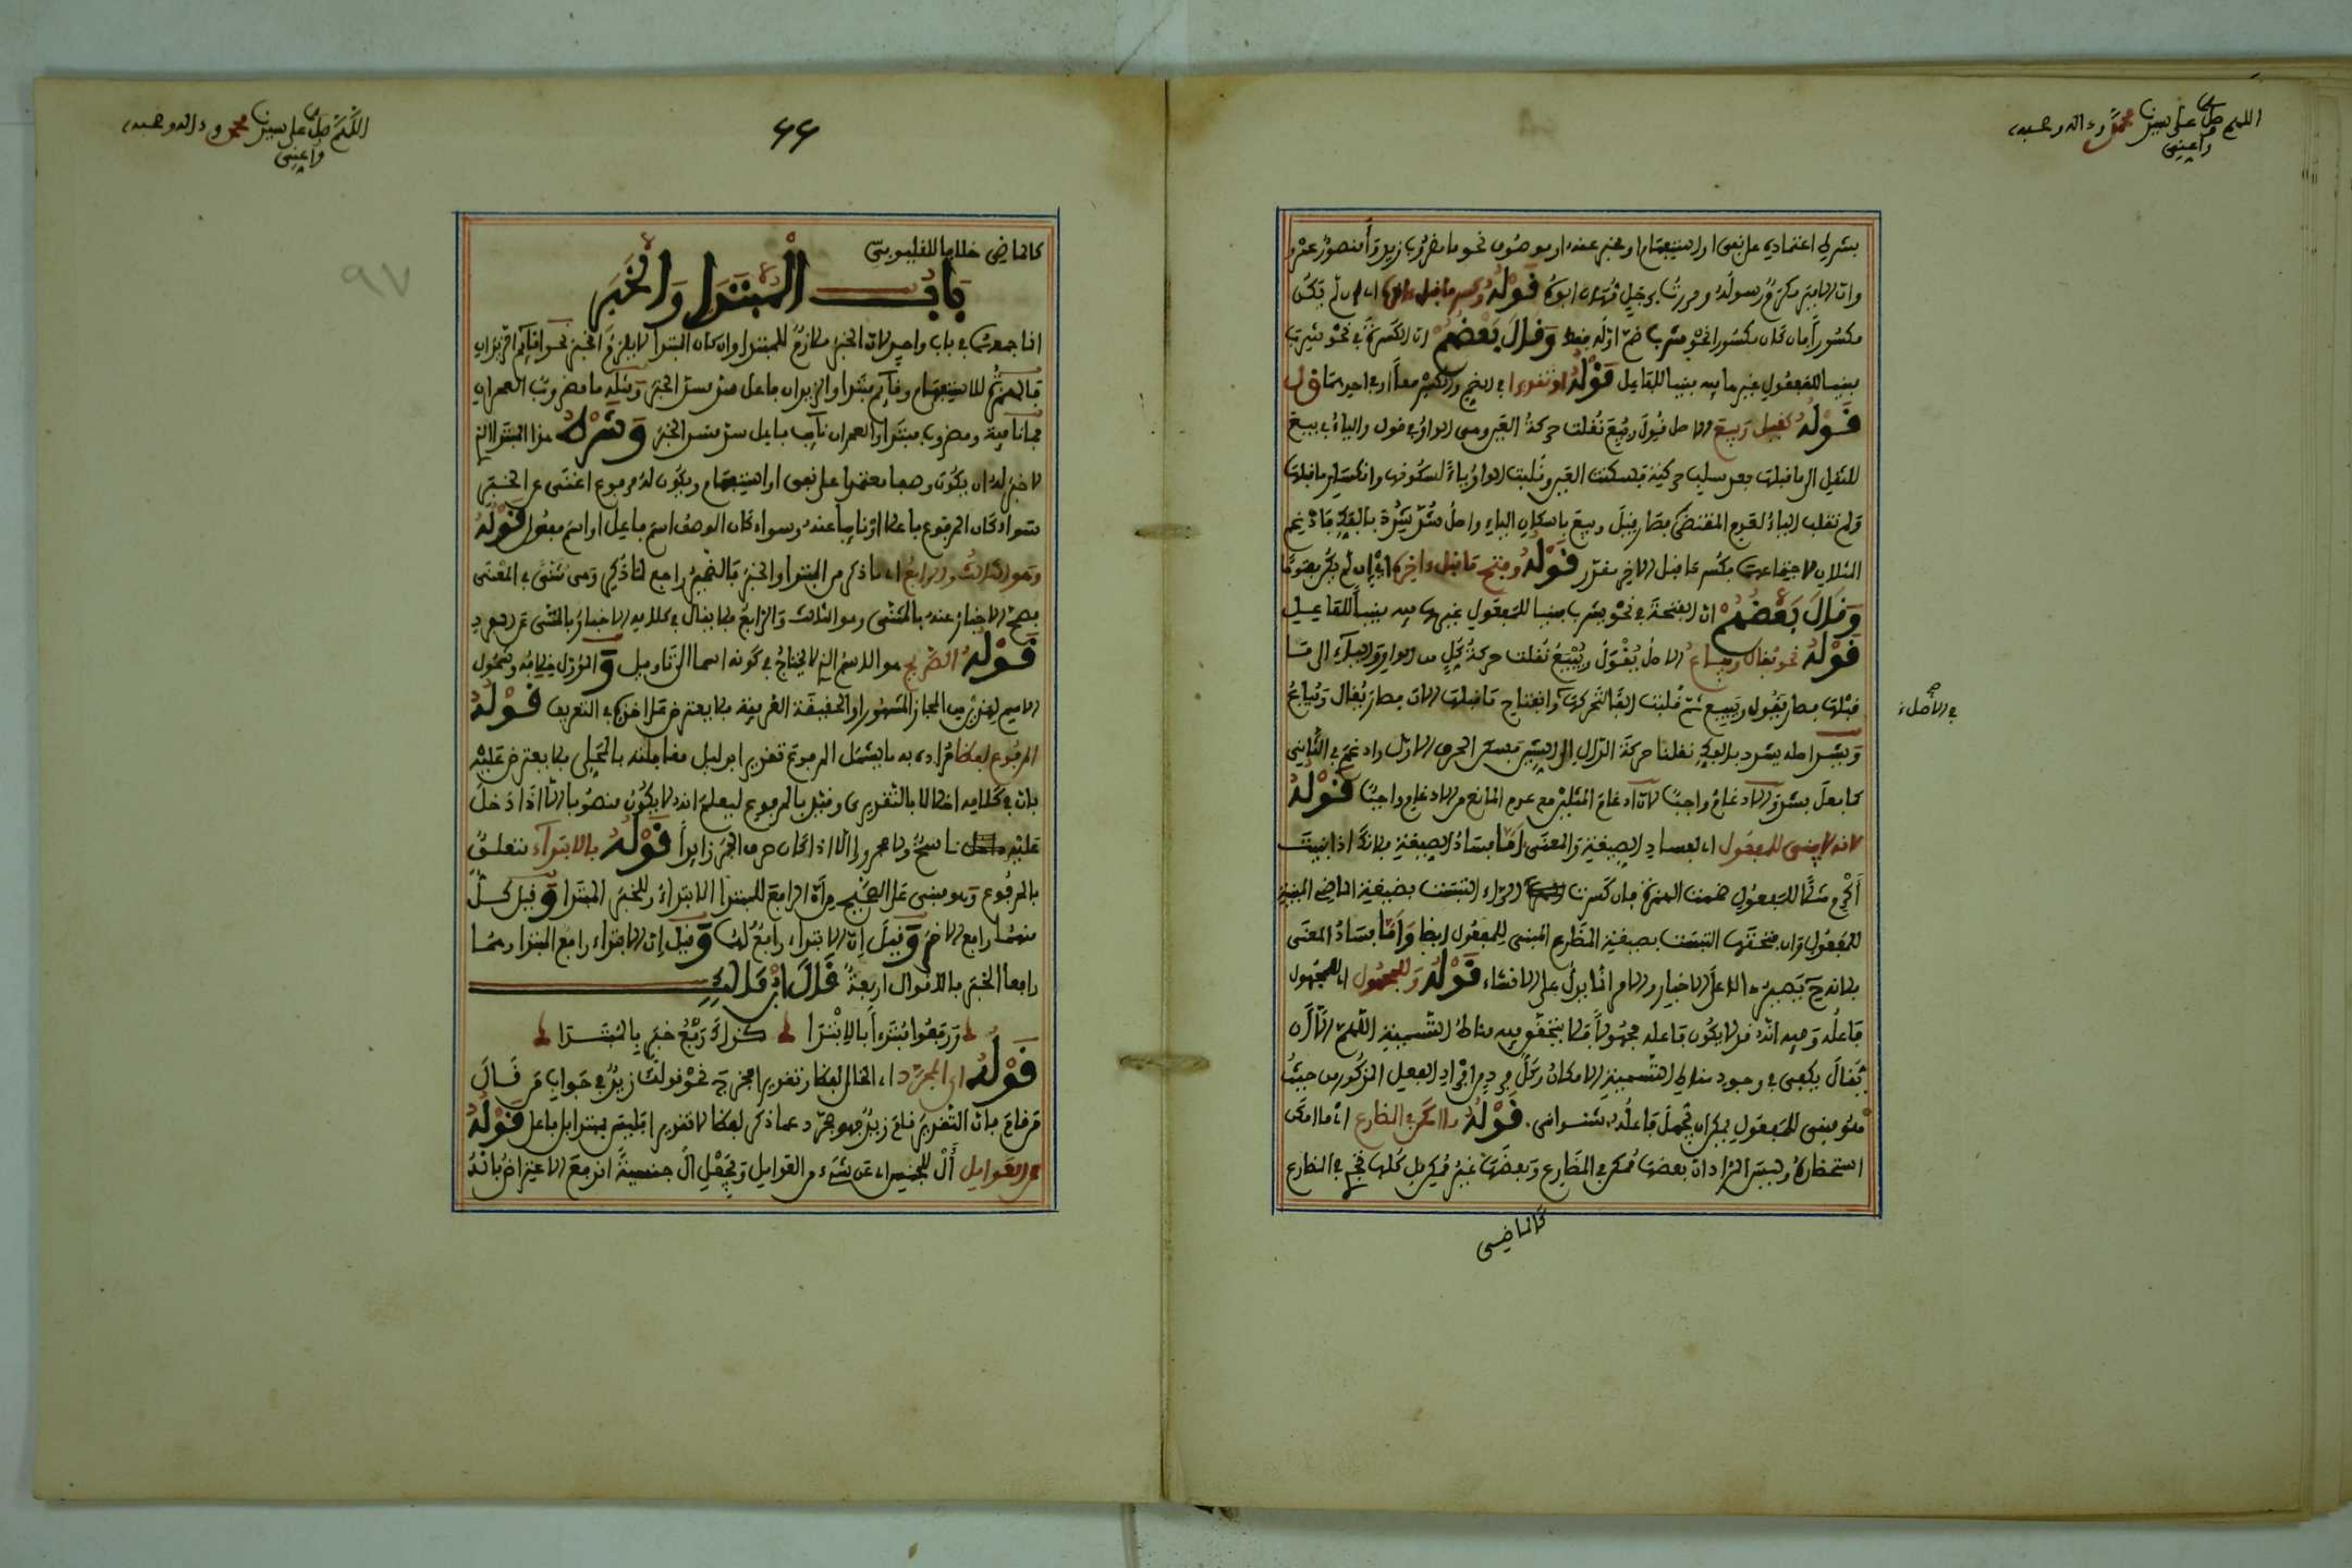 اللهم صل على سيدنا محمد وءاله وصحبه
وأعني
بشرط اعتماده على نفي او استفهام او مخبر عنه او موصوف نحو ما مضروب زيد وأمنصور عمرو
وان الامير مكرم رسوله ومررت برجل مهان ابوه قوله وكسر ما قبل ءاخره اي ان لم يكن
مكسورا فان كان مكسورا نحو شرب ضم اوله فقط وقال بعضهم ان الكسرة في نحو شرب
مبنيا للمفعول غيرها فيه مبنيا للفاعل قوله او تقديرا في الضم والكسر معا او في احدهما
قوله كقيل وبيع الاصل قول وبيع نقلت حركة العين وهي الواو في قول والياء في بيع
للثقيل الى ما قبلها بعد سلب حركته فسكنت العين وقلبت الواو ياء لسكونها وانكسار ما قبلها
ولم تقلب الياء لعدم المقتضى فصار قيل وبيع باسكان الياء واصل شد شدد بالفك فادغم
المثلان لاجتماعهما فكسر ما قبل الاخر مقدر قوله وفتح ما قبل ءاخره اي ان لم يكن مفتوحا
وقال بعضهم ان الفتحة في نحو يشرب مبنيا للمفعول غيرها فيه مبنيا للفاعل
قوله نحو يقال ويباع الاصل يقول ويبيع نقلت حركة كل من الواو والياء الى ما
قبلها فصار يقول ويبيع ثم قلبت الفا لتحركها وانفتاح ما قبلها الان فصار يقال ويباع
في الاصل صح
ويشد اصله يشدد بالفك نقلنا حركة الدال الى الشين فسكن الحرف الاول وادغم في الثاني
كما فعل بشد والادغام واجب لان ادغام المثلين مع عدم المانع من الادغام واجب قوله
لانه لا يبنى للمفعول اي لفساد الصيغة والمعنى اما فساد الصيغة فلانك اذا بنيت
أكرم مثلا للمفعول ضممت الهمزة فان كسرت الراء التبست بصيغة الماضي المبنية
للمفعول وان فتحتها التبست بصيغة المضارع المبني للمفعول ايضا واما فساد المعنى
فلانه ح يصير دالا على الاخبار والامر انما يدل على الانشاء قوله وللمجهول اي المجهول
فاعله وفيه انه قد لا يكون فاعله مجهولا فلا يتحقق فيه مناط التسمية اللهم الا أن
يقال يكفي في وجود مناط التسمية الامكان وكل فرد من افراد الفعل المذكور من حيث
هو مبني للمفعول يمكن ان يجهل فاعله شنواني قوله ما امكن في المضارع اي ما امكن
استحضاره وليس المراد ان بعضها ممكن في المضارع وبعضها غير ممكن بل كلها تجري في المضارع
كالماضي
اللهم صل على سيدنا محمد وءاله وصحبه
وأعني
٦٦
٩٧
كالماضي خلافا للقليوبي
باب المبتدا والخبر
انما جمعهما في باب واحد لان الخبر ملازم للمبتدا وان كان المبتدا لا يلازم الخبر نحو اقائم الزيدان
فالهمزة للاستفهام وقائم مبتدا والزيدان فاعل سد مسد الخبر ومثله ما مضروب العمران
فما نافية ومضروب مبتدا والعمران نائب فاعل سد مسد الخبر وشرط هذا المبتدا الذي
لا خبر له ان يكون وصفا معتمدا على نفي او استفهام ويكون له مرفوع اغنى عن الخبر
سواء كان المرفوع فاعلا او نائبا عنه وسواء كان الوصف اسم فاعل او اسم مفعول قوله
وهو الثالث والرابع اي ما ذكر من المبتدا والخبر فالضمير راجع لما ذكر وهي مثنى في المعنى
فصح الاخبار عنه بالمثنى وهو الثالث والرابع فلا يقال في كلامه الاخبار بالمثنى عن المفرد
قوله الصريح هو الاسم الذي لا يحتاج في كونه اسما الى تاويل والمؤول خلافه وشمول
الاسم لهذين من المجاز المشهور او الحقيقة العرفية فلا يعترض على اخذه في التعريف قوله
المرفوع لفظا مراده به ما يشمل المرفوع تقديرا بدليل مقابلته بالمحلي فلا يعترض عليه
بان في كلامه اخلالا بالتقديري وقيد بالمرفوع ليعلم انه لا يكون منصوبا الا اذا دخل
عليه ناسخ ولا مجرورا الا اذا كان حرف الجر زايدا قوله بالابتداء متعلق
بالمرفوع وهو مبني على الصحيح من ان الرافع للمبتدا الابتداء وللخبر المبتدا وقيل كل
منهما رافع الاخر وقيل ان الابتداء رافع لهما وقيل ان الابتداء رافع المبتدا وهما
رافعا الخبر فالاقوال اربعة قال ابن مالك
ورفعوا مبتدءا بالابتدا كذاك رفع خبر بالمبتدا
قوله اي المجرد اي الخالي لفظا وتقديرا فخرج نحو قولك زيد في جواب من قال
من قام فان التقدير قام زيد فهو مجرد عما ذكر لفظا لا تقديرا فليس بمبتدا بل فاعل قوله
عن العوامل أل للجنس اي عن شيء من العوامل وبجعل ال جنسية اندفع الاعتراض بانه